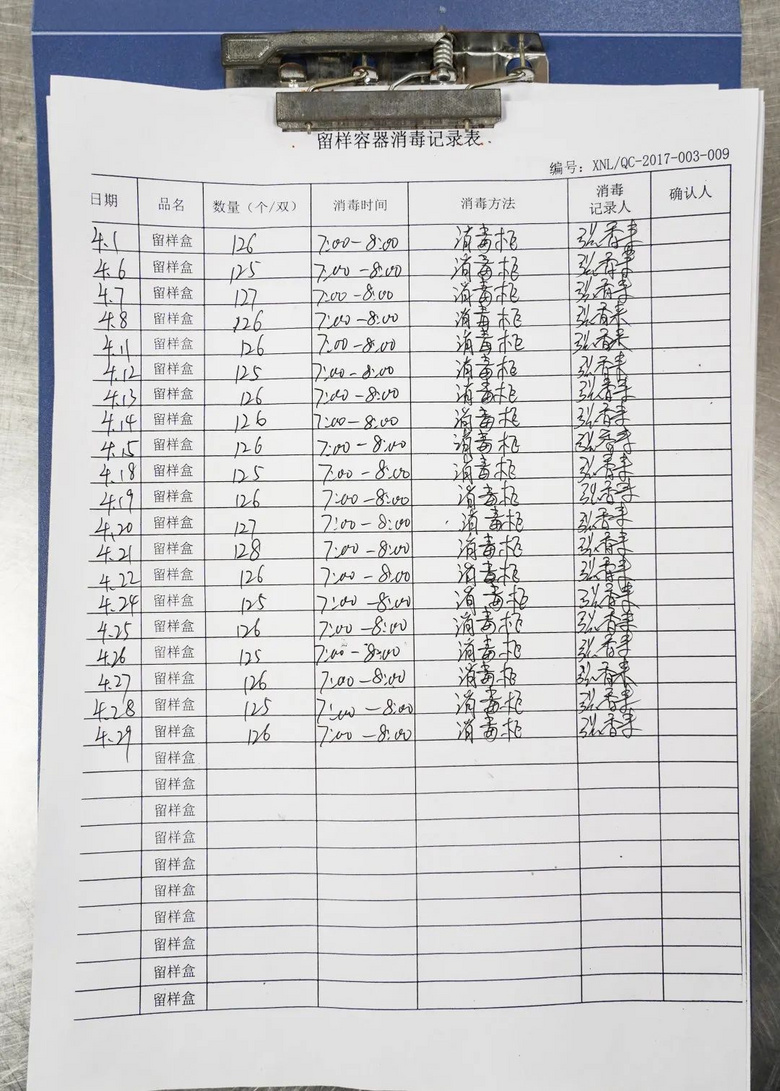 留样容器消毒记录表
编号：XNL/QC-2017-003-009
日期 品名 数量（个/双） 消毒时间 消毒方法 消毒记录人 确认人
4.1 留样盒 126 7:00-8:00 消毒柜 张香来
4.6 留样盒 125 7:00-8:00 消毒柜 张香来
4.7 留样盒 127 7:00-8:00 消毒柜 张香来
4.8 留样盒 126 7:00-8:00 消毒柜 张香来
4.11 留样盒 126 7:00-8:00 消毒柜 张香来
4.12 留样盒 125 7:00-8:00 消毒柜 张香来
4.13 留样盒 126 7:00-8:00 消毒柜 张香来
4.14 留样盒 126 7:00-8:00 消毒柜 张香来
4.15 留样盒 126 7:00-8:00 消毒柜 张香来
4.18 留样盒 125 7:00-8:00 消毒柜 张香来
4.19 留样盒 126 7:00-8:00 消毒柜 张香来
4.20 留样盒 127 7:00-8:00 消毒柜 张香来
4.21 留样盒 128 7:00-8:00 消毒柜 张香来
4.22 留样盒 126 7:00-8:00 消毒柜 张香来
4.24 留样盒 125 7:00-8:00 消毒柜 张香来
4.25 留样盒 126 7:00-8:00 消毒柜 张香来
4.26 留样盒 125 7:00-8:00 消毒柜 张香来
4.27 留样盒 126 7:00-8:00 消毒柜 张香来
4.28 留样盒 125 7:00-8:00 消毒柜 张香来
4.29 留样盒 126 7:00-8:00 消毒柜 张香来
留样盒
留样盒
留样盒
留样盒
留样盒
留样盒
留样盒
留样盒
留样盒
留样盒